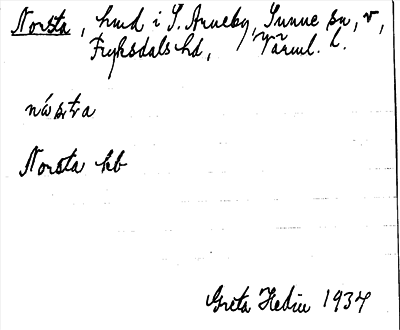 Norsta, hmd i S. Arneby, Sunne sn, v,
Fryksdals hd, Värml. l.
nástra
Norsta kb
Greta Hedin 1934